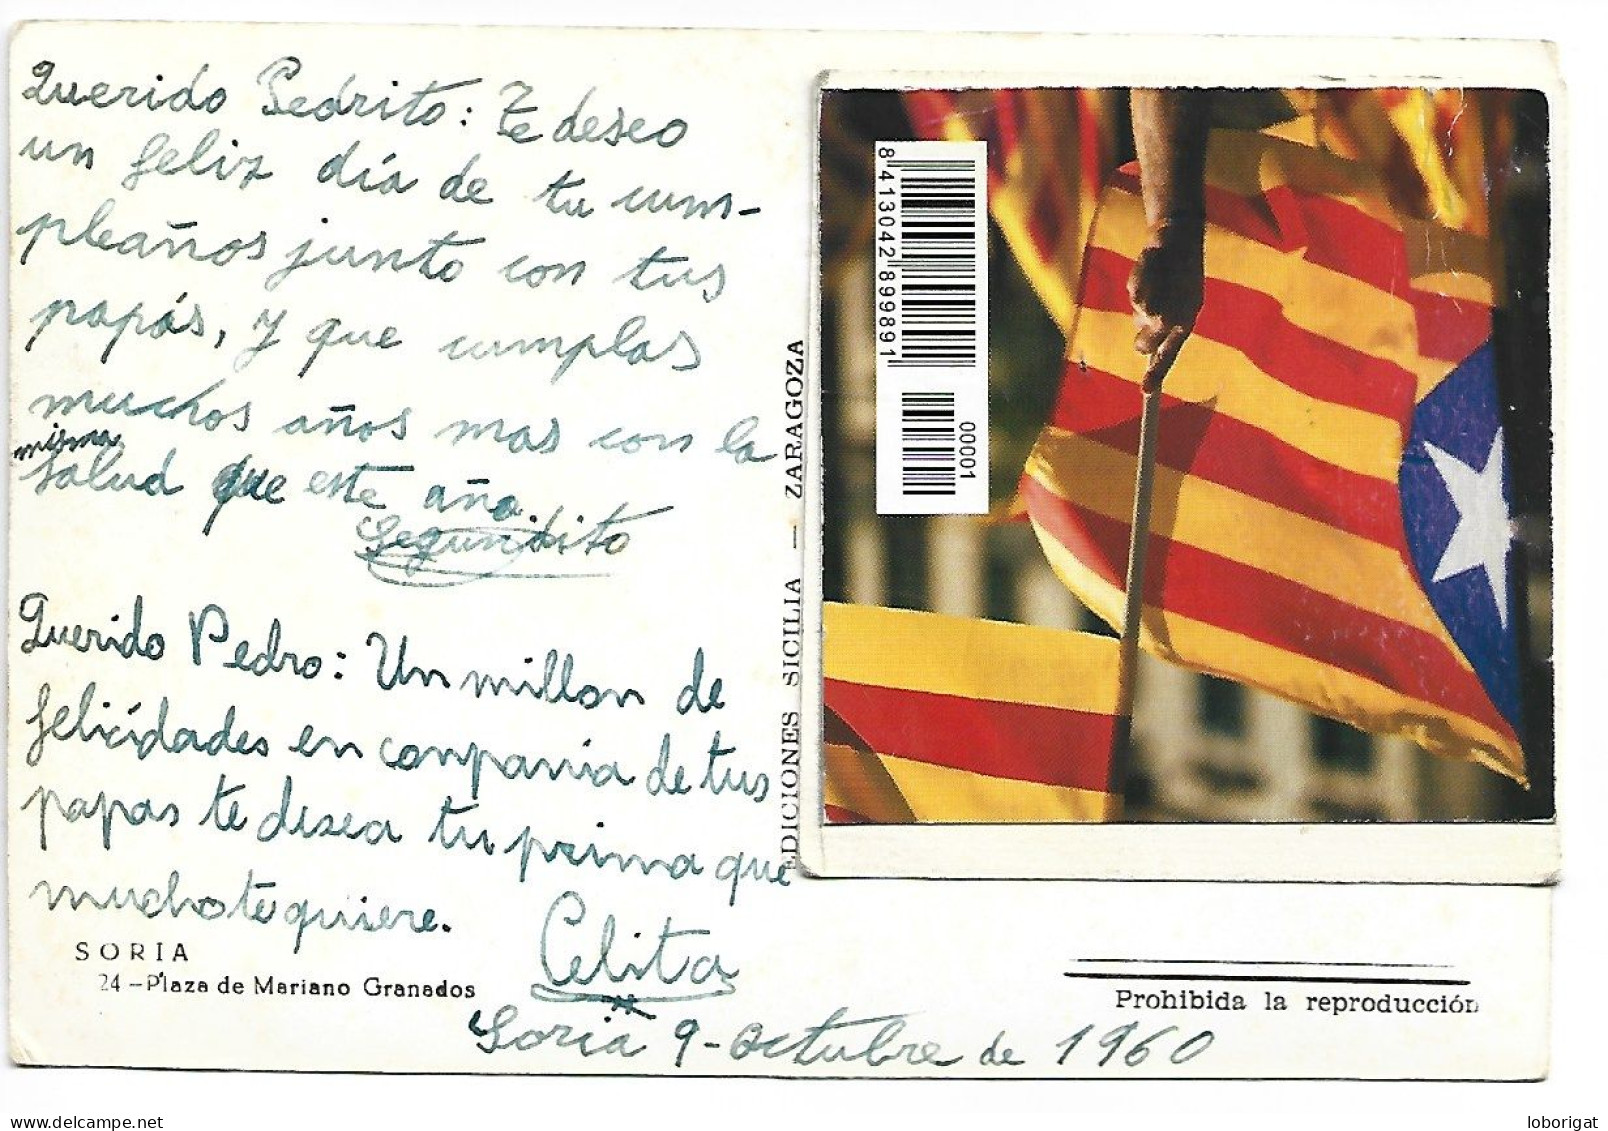 Querido Pedrito: Te deseo
un feliz día de tu cum-
pleaños junto con tus
papás, y que cumplas
muchos años mas con la
misma
salud que este año.
Segundito
Querido Pedro: Un millon de
felicidades en conpania de tus
papas te desea tu prima que
mucho te quiere.
Celita
SORIA
24 - Plaza de Mariano Granados
Soria 9 - octubre de 1960
EDICIONES SICILIA — ZARAGOZA
8 413042 899891
00001
Prohibida la reproducción
loborigat